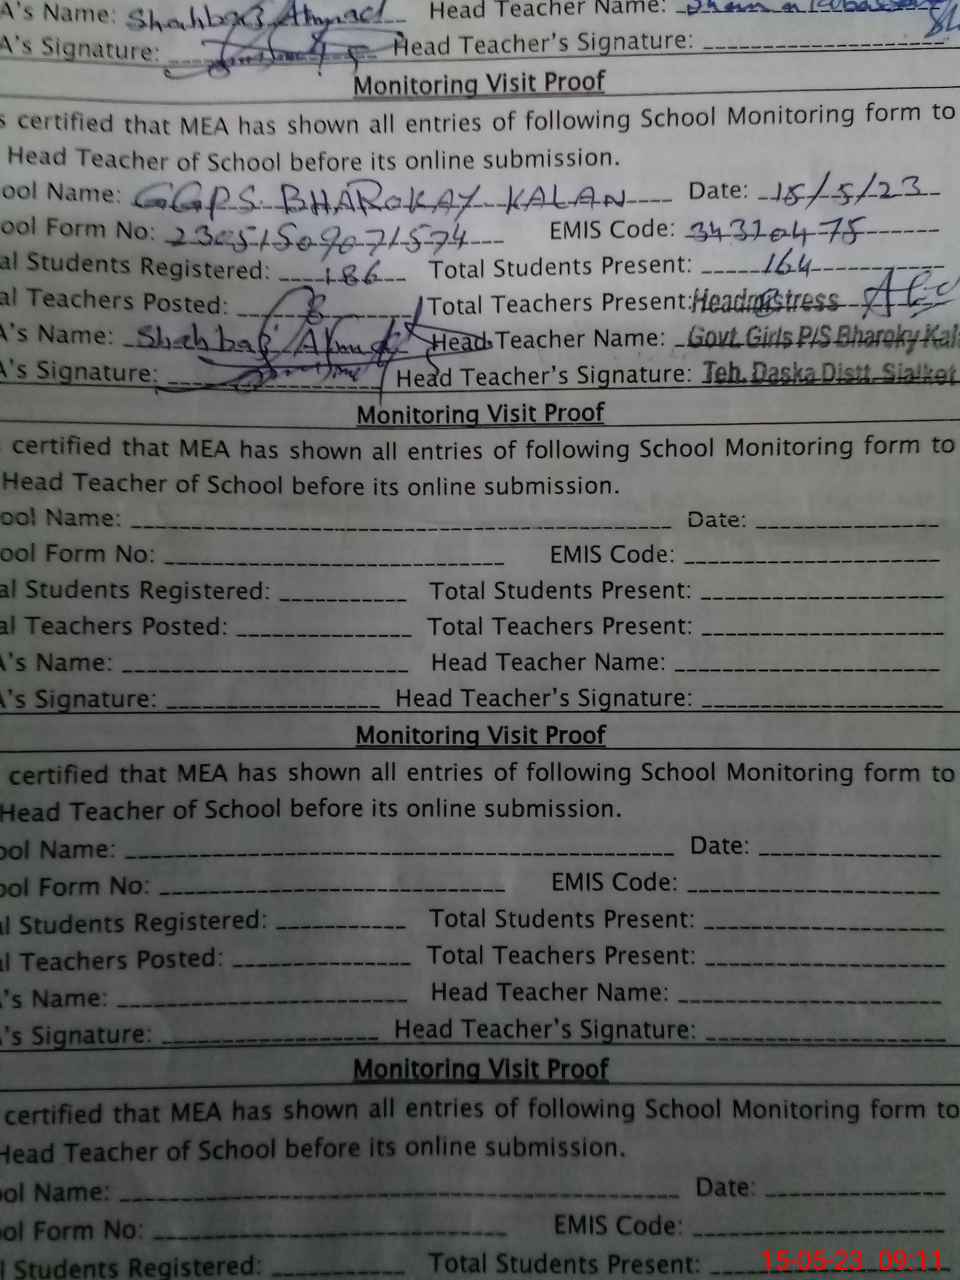 A's Name: Shahbaz Ahmad Head Teacher Name:
A's Signature: Head Teacher's Signature:
Monitoring Visit Proof
s certified that MEA has shown all entries of following School Monitoring form to
Head Teacher of School before its online submission.
ool Name: GGPS BHAROKAY KALAN Date: 15/5/23
ool Form No: 23051509071574 EMIS Code: 34320475
al Students Registered: 186 Total Students Present: 164
al Teachers Posted: 8 Total Teachers Present: Headmistress
A's Name: Shahbaz Ahmad Head Teacher Name: Govt. Girls P/S Bharoky Kal
A's Signature: Head Teacher's Signature: Teh. Daska Distt. Sialkot
Monitoring Visit Proof
certified that MEA has shown all entries of following School Monitoring form to
Head Teacher of School before its online submission.
ool Name: Date:
ool Form No: EMIS Code:
al Students Registered: Total Students Present:
al Teachers Posted: Total Teachers Present:
A's Name: Head Teacher Name:
A's Signature: Head Teacher's Signature:
Monitoring Visit Proof
certified that MEA has shown all entries of following School Monitoring form to
Head Teacher of School before its online submission.
ool Name: Date:
ool Form No: EMIS Code:
al Students Registered: Total Students Present:
al Teachers Posted: Total Teachers Present:
A's Name: Head Teacher Name:
A's Signature: Head Teacher's Signature:
Monitoring Visit Proof
certified that MEA has shown all entries of following School Monitoring form to
Head Teacher of School before its online submission.
ool Name: Date:
ool Form No: EMIS Code:
l Students Registered: Total Students Present:
15-05-23 09:11